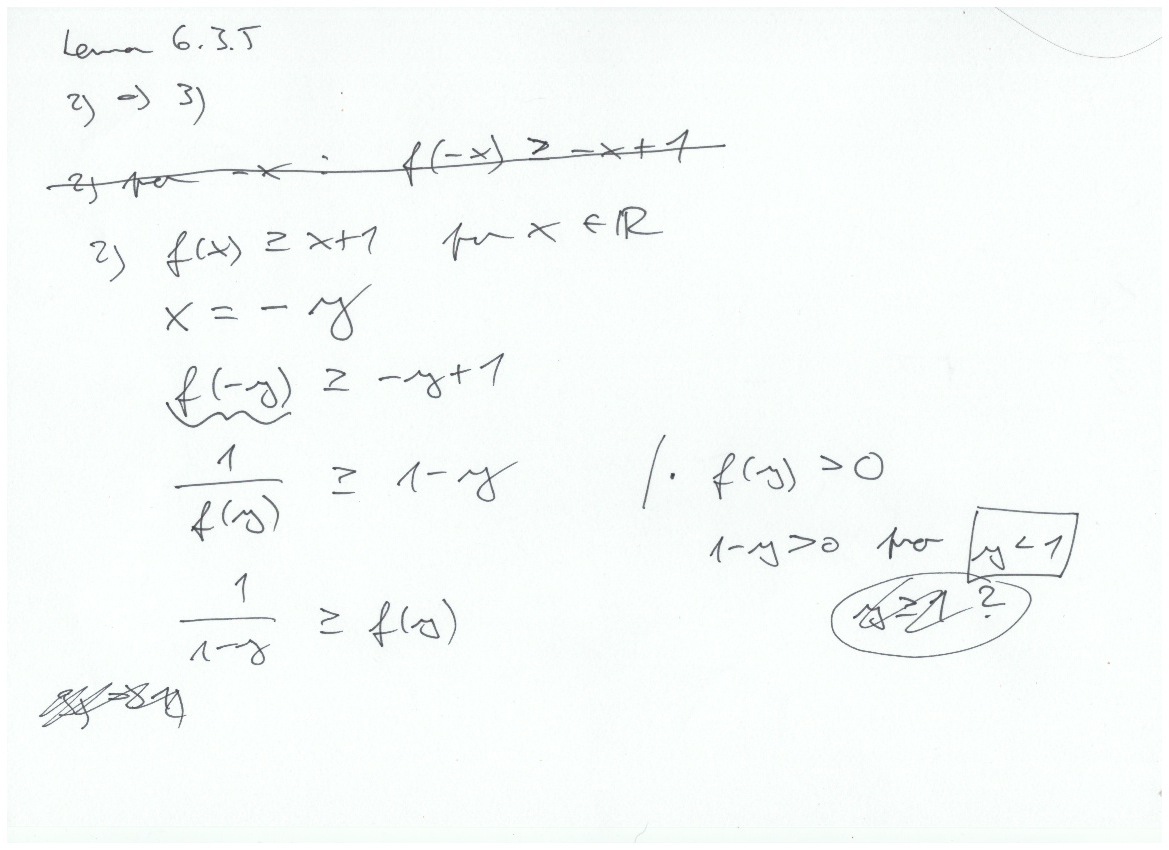 Lemma 6.3.5
2) => 3)
2) pro -x : f(-x) ≥ -x+1
2) f(x) ≥ x+1 pro x ∈ ℝ
x = - y
f(-y) ≥ -y+1
1/f(y) ≥ 1-y /· f(y) > 0
1-y>0 pro y<1
y≥1 ?
1/(1-y) ≥ f(y)